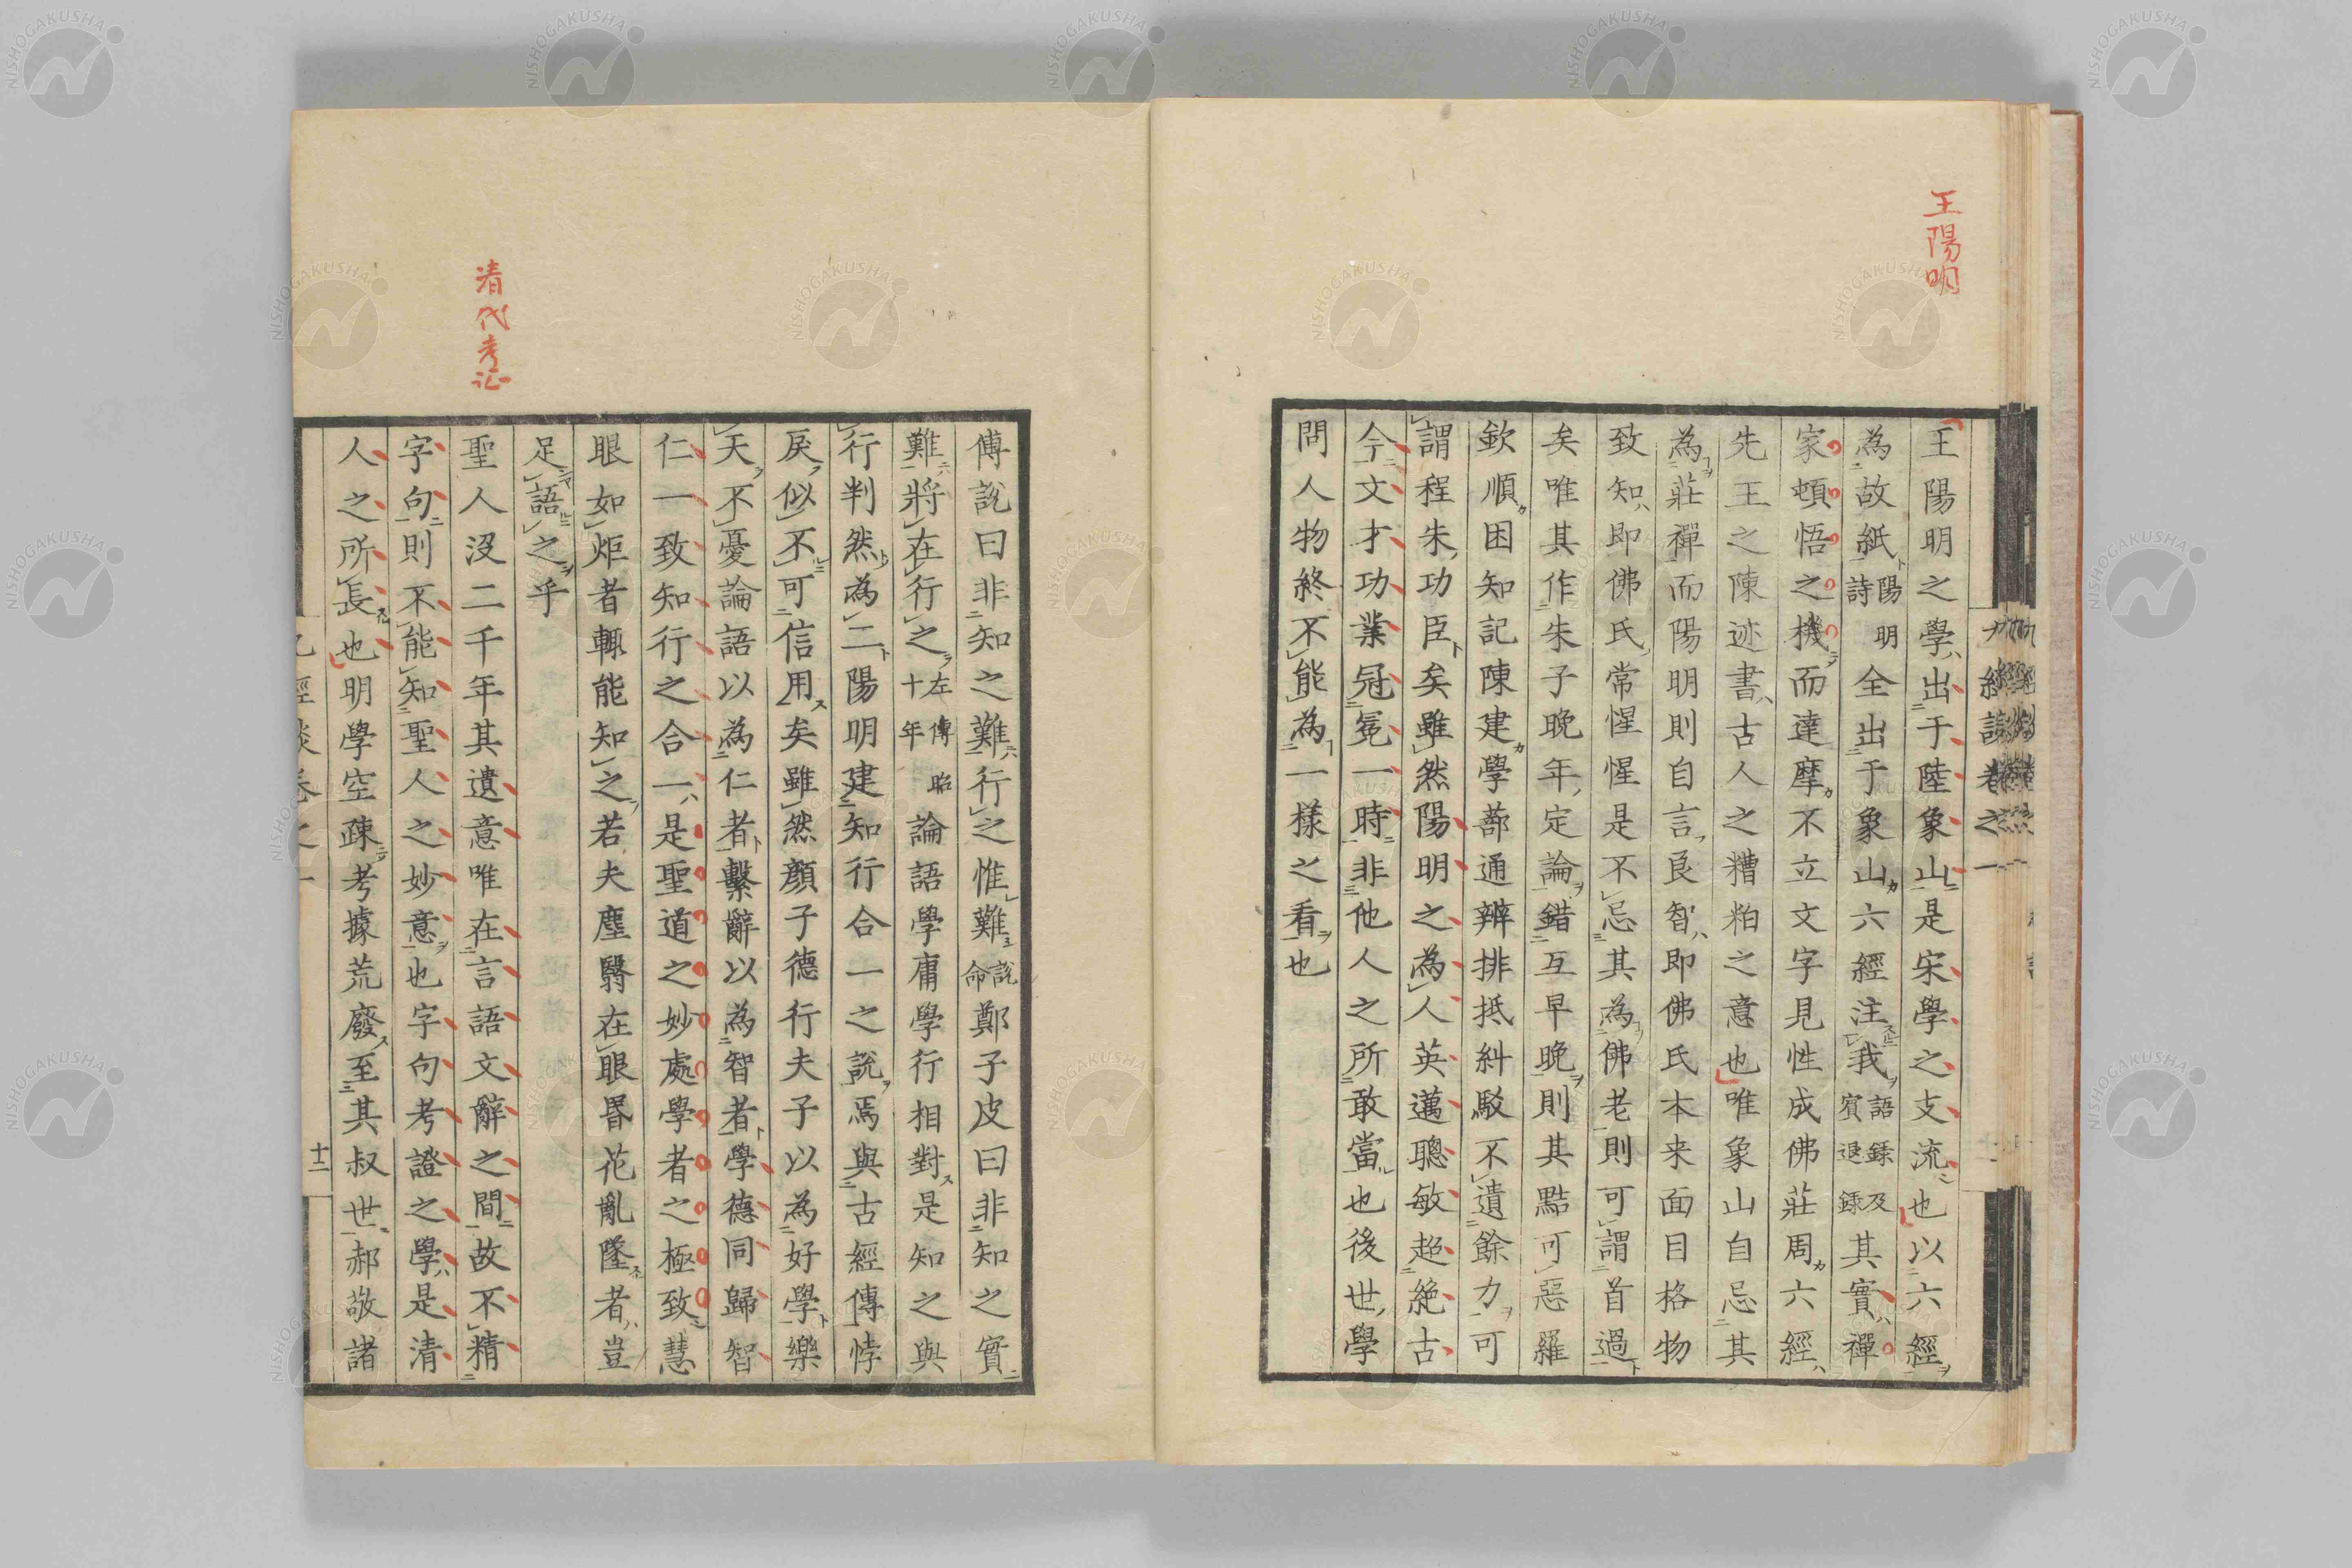 王陽明
九經談卷之一
王陽明之學出于陸象山是宋學之支流也以六經
為故紙陽明詩全出于象山六經注我語錄及賓退錄其實禪
家頓悟之機而達摩不立文字見性成佛莊周六經
先王之陳迹書古人之糟粕之意也唯象山自忌其
為莊禪而陽明則自言良智即佛氏本来面目格物
致知即佛氏常惺惺是不忌其為佛老則可謂首過
矣唯其作朱子晚年定論錯互早晚則其點可惡羅
欽順困知記陳建學蔀通辨排抵糾駁不遺餘力可
謂程朱功臣矣雖然陽明之為人英邁聰敏超絶古
今文才功業冠冕一時非他人之所敢當也後世學
問人物終不能為一樣之看也
傅說曰非知之難行之惟難說命鄭子皮曰非知之實
難將在行之左傳昭十年論語學庸學行相對是知之與
行判然為二陽明建知行合一之說焉與古經傳悖
戾似不可信用矣雖然顏子德行夫子以為好學樂
天不憂論語以為仁者繫辭以為智者學德同歸智
仁一致知行之合一是聖道之妙處學者之極致慧
眼如炬者輙能知之若夫塵翳在眼昬花亂墜者豈
足語之乎
清代考证
聖人没二千年其遺意唯在言語文辭之間故不精
字句則不能知聖人之妙意也字句考證之學是清
人之所長也明學空疎考據荒廢至其叔世郝敬諸
九經談卷之一
十二
NISHOGAKUSHA